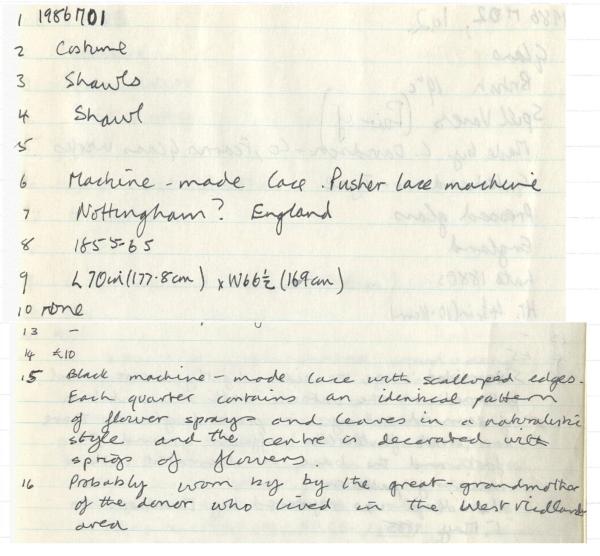 1 1986M01
2 Costume
3 Shawls
4 Shawl
5
6 Machine-made lace. Pusher lace machine
7 Nottingham? England
8 1855-65
9 L 70in (177.8cm) x W66½ (169cm)
10 none
13 -
14 £10
15 Black machine-made lace with scalloped edges.
Each quarter contains an identical pattern
of flower sprays and leaves in a naturalistic
style and the centre is decorated with
sprigs of flowers.
16 Probably worn by by the great-grandmother
of the donor who lived in the West Midlands
area